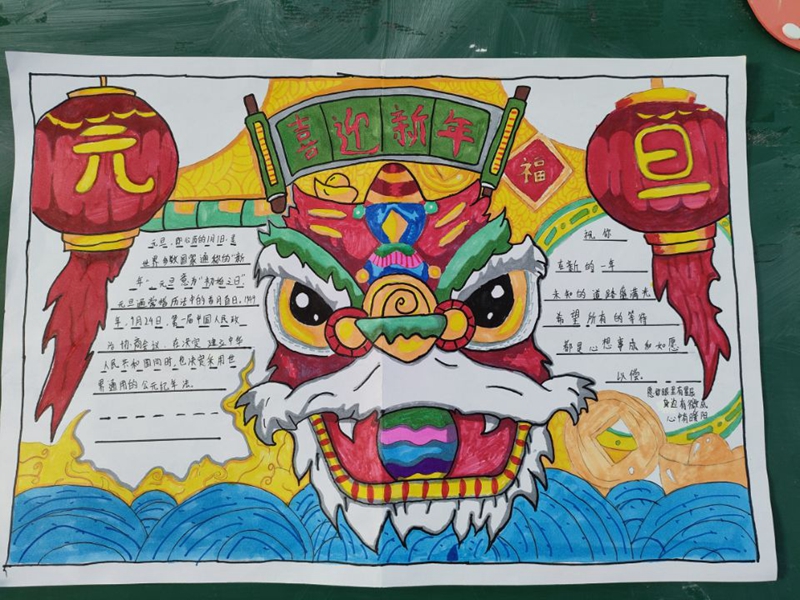 喜迎新年
福
元
旦
元旦,即公历的1月1日,是
世界多数国家通称的“新
年”。元旦意为“初始之日”
元旦通常指历法中的首月首日。1949
年,9月24日,第一届中国人民政
治协商会议,在决定建立中华
人民共和国同时,也决定采用世
界通用的公元纪年法。
祝你
在新的一年
未知的道路充满光
希望所有的等待
都是心想事成和如愿
以偿。
愿你眼里有星辰
身边有微光
心中有暖阳